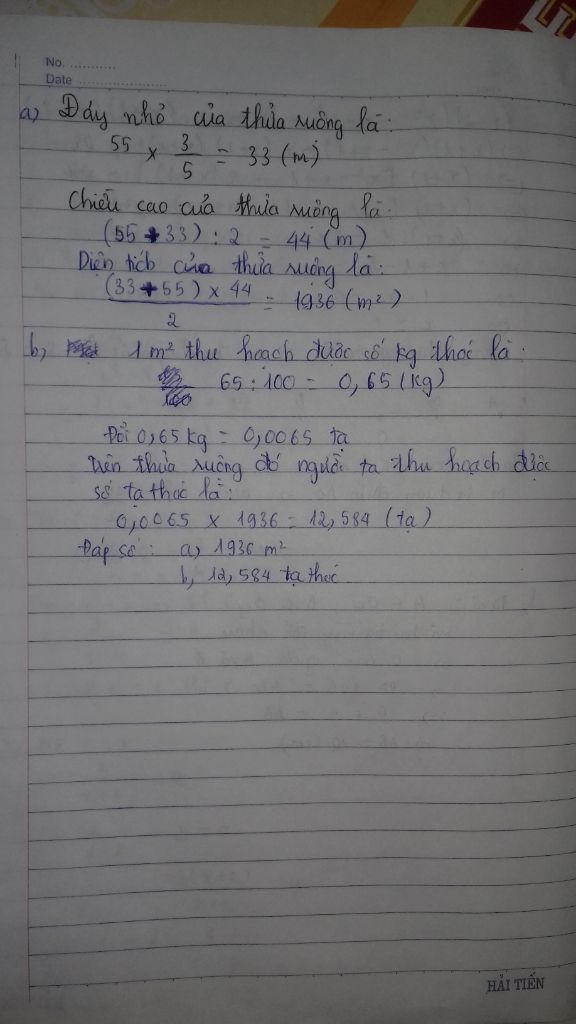 No. ............
Date .....................
a, Đáy nhỏ của thửa ruộng là:
55 × 3/5 = 33 (m)
Chiều cao của thửa ruộng là:
(55 + 33) : 2 = 44 (m)
Diện tích của thửa ruộng là:
(33 + 55) × 44 / 2 = 1936 (m²)
b, 1 m² thu hoạch được số kg thóc là:
65 : 100 = 0,65 (kg)
Đổi 0,65 kg = 0,0065 tạ
Trên thửa ruộng đó người ta thu hoạch được
số tạ thóc là:
0,0065 × 1936 = 12,584 (tạ)
Đáp số: a, 1936 m²
b, 12,584 tạ thóc
HẢI TIẾN